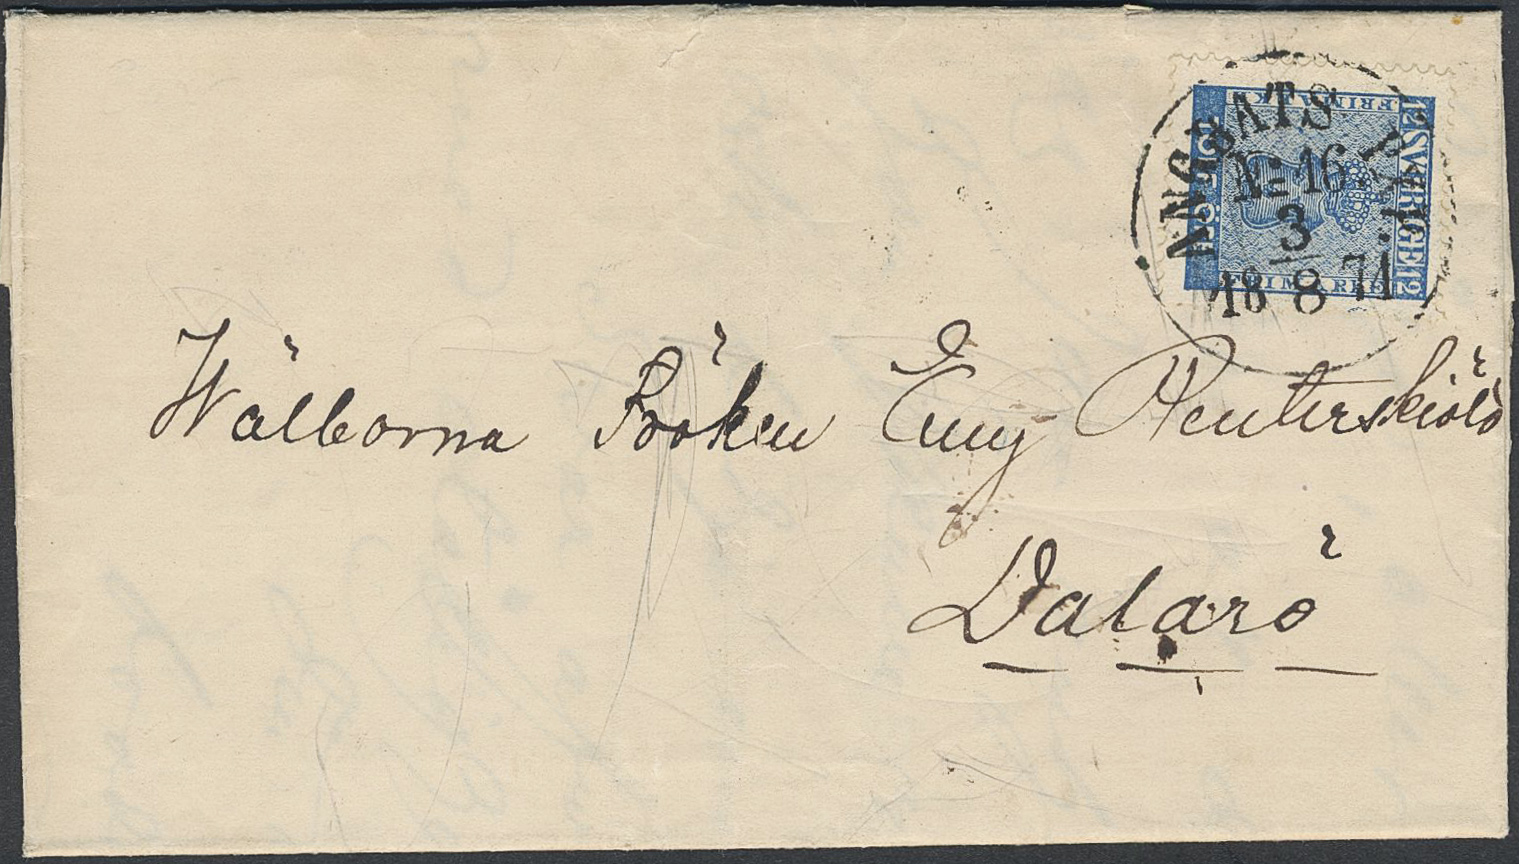 ÅNGBÅTS PXP.
No 16
3
18 8 71
12 SVERIGE 12
FRIMÄRKE
FRIMÄRKE
Wälborna Fröken Emy Reuterskiöld
Dalarö